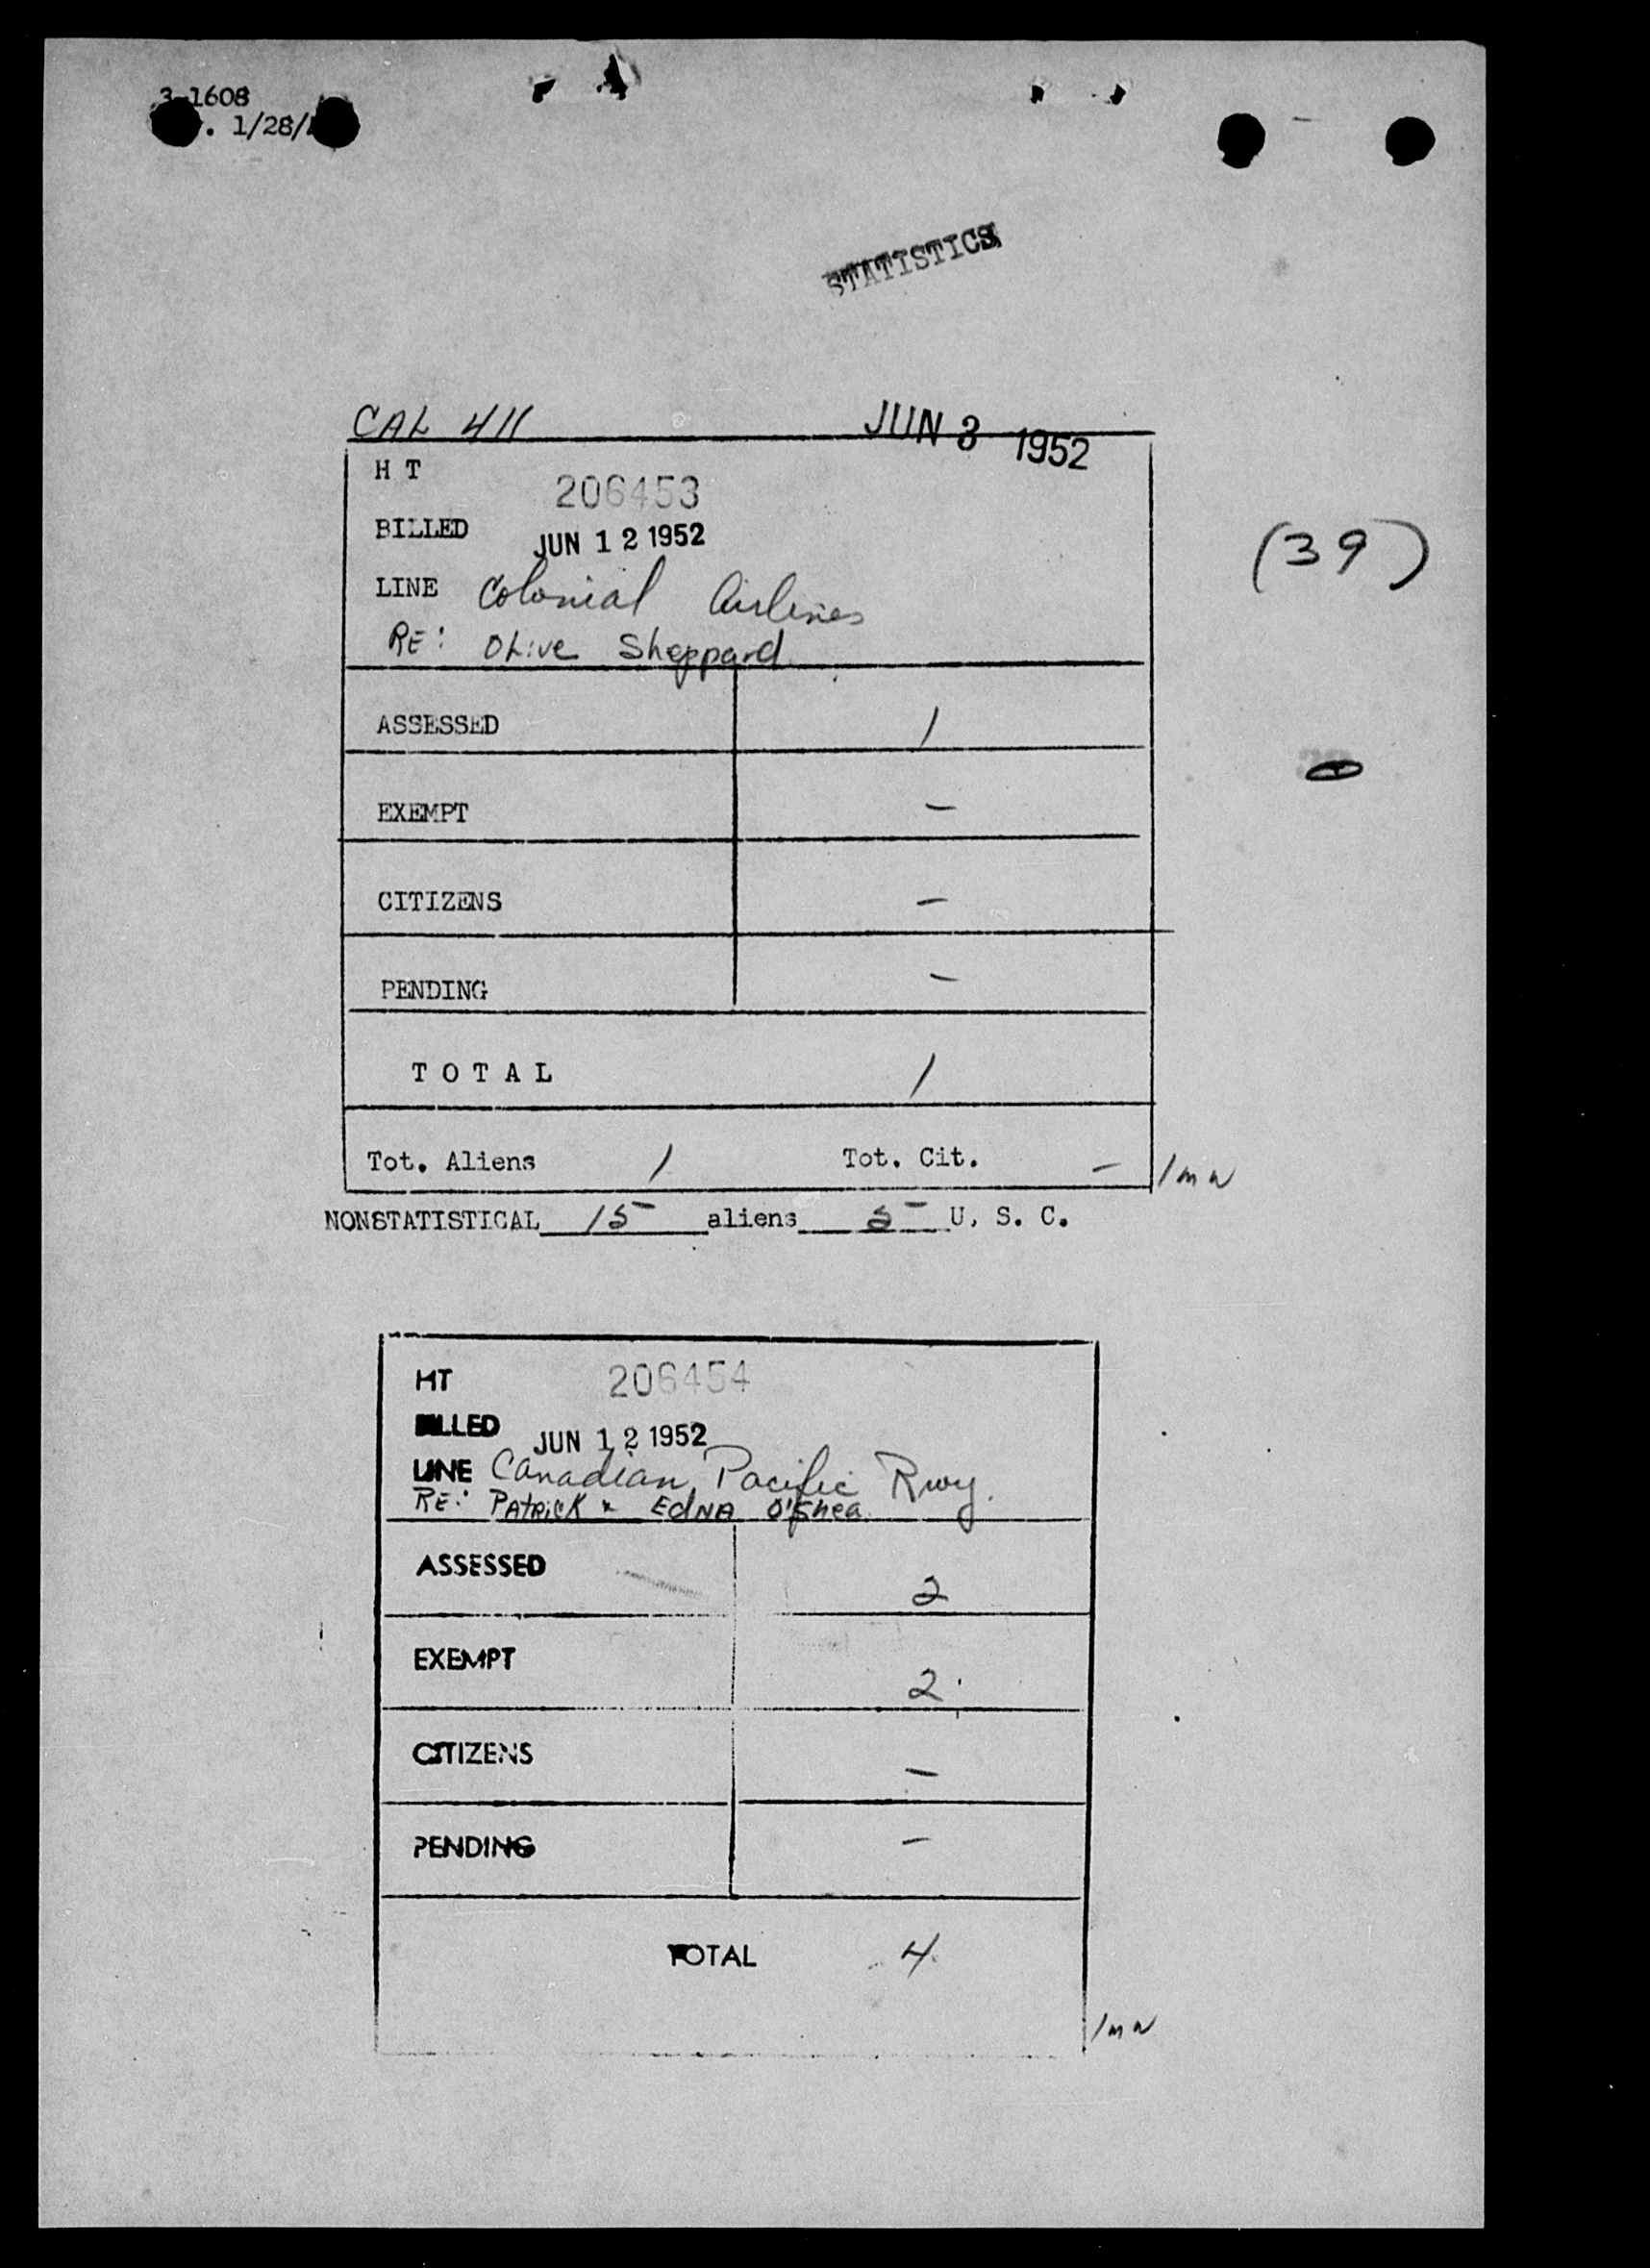 3-1608
. 1/28/
STATISTICS
CAL 411 JUN 3 1952
H T 206453
BILLED JUN 12 1952
(39)
LINE Colonial Airlines
RE: Olive Sheppard
ASSESSED 1
EXEMPT –
CITIZENS –
PENDING –
T O T A L 1
Tot. Aliens 1 Tot. Cit. – /mw
NONSTATISTICAL 15 aliens 5 U. S. C.
HT 206454
BILLED JUN 12 1952
LINE Canadian Pacific Rwy.
RE: PATRICK & EDNA O'Shea
ASSESSED 2
EXEMPT 2
CITIZENS –
PENDING –
TOTAL 4
/mw